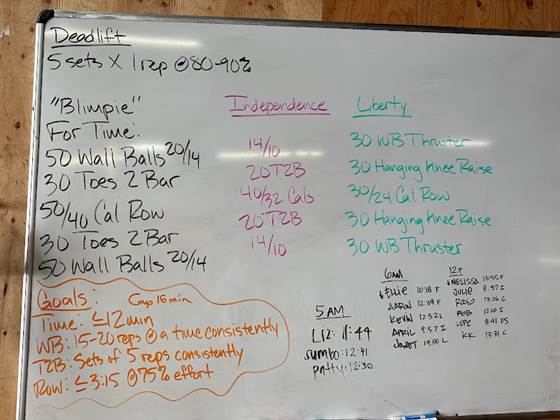 Deadlift
5 sets X 1 rep @ 80-90%
"Blimpie"
For Time:
50 Wall Balls 20/14
30 Toes 2 Bar
50/40 Cal Row
30 Toes 2 Bar
50 Wall Balls 20/14
Independence
14/10
20 T2B
40/32 Cals
20 T2B
14/10
Liberty
30 WB Thruster
30 Hanging Knee Raise
30/24 Cal Row
30 Hanging Knee Raise
30 WB Thruster
Goals: Cap 16 min
Time: ≤12 min
WB: 15-20 reps @ a time consistently
T2B: Sets of 5 reps consistently
Row: ≤ 3:15 @ 75% effort
5 AM
Liz: 11:44
Sumbo: 12:41
Patty: 12:30
6AM
Ellie 10:18 F
AARON 12:29 F
KEVIN 12:52 I
APRIL 9:57 I
JANET 14:00 L
12P
MELISSA 13:55 F
JULIE 8:57 I
ROB 12:10 I
KK 13:71 C